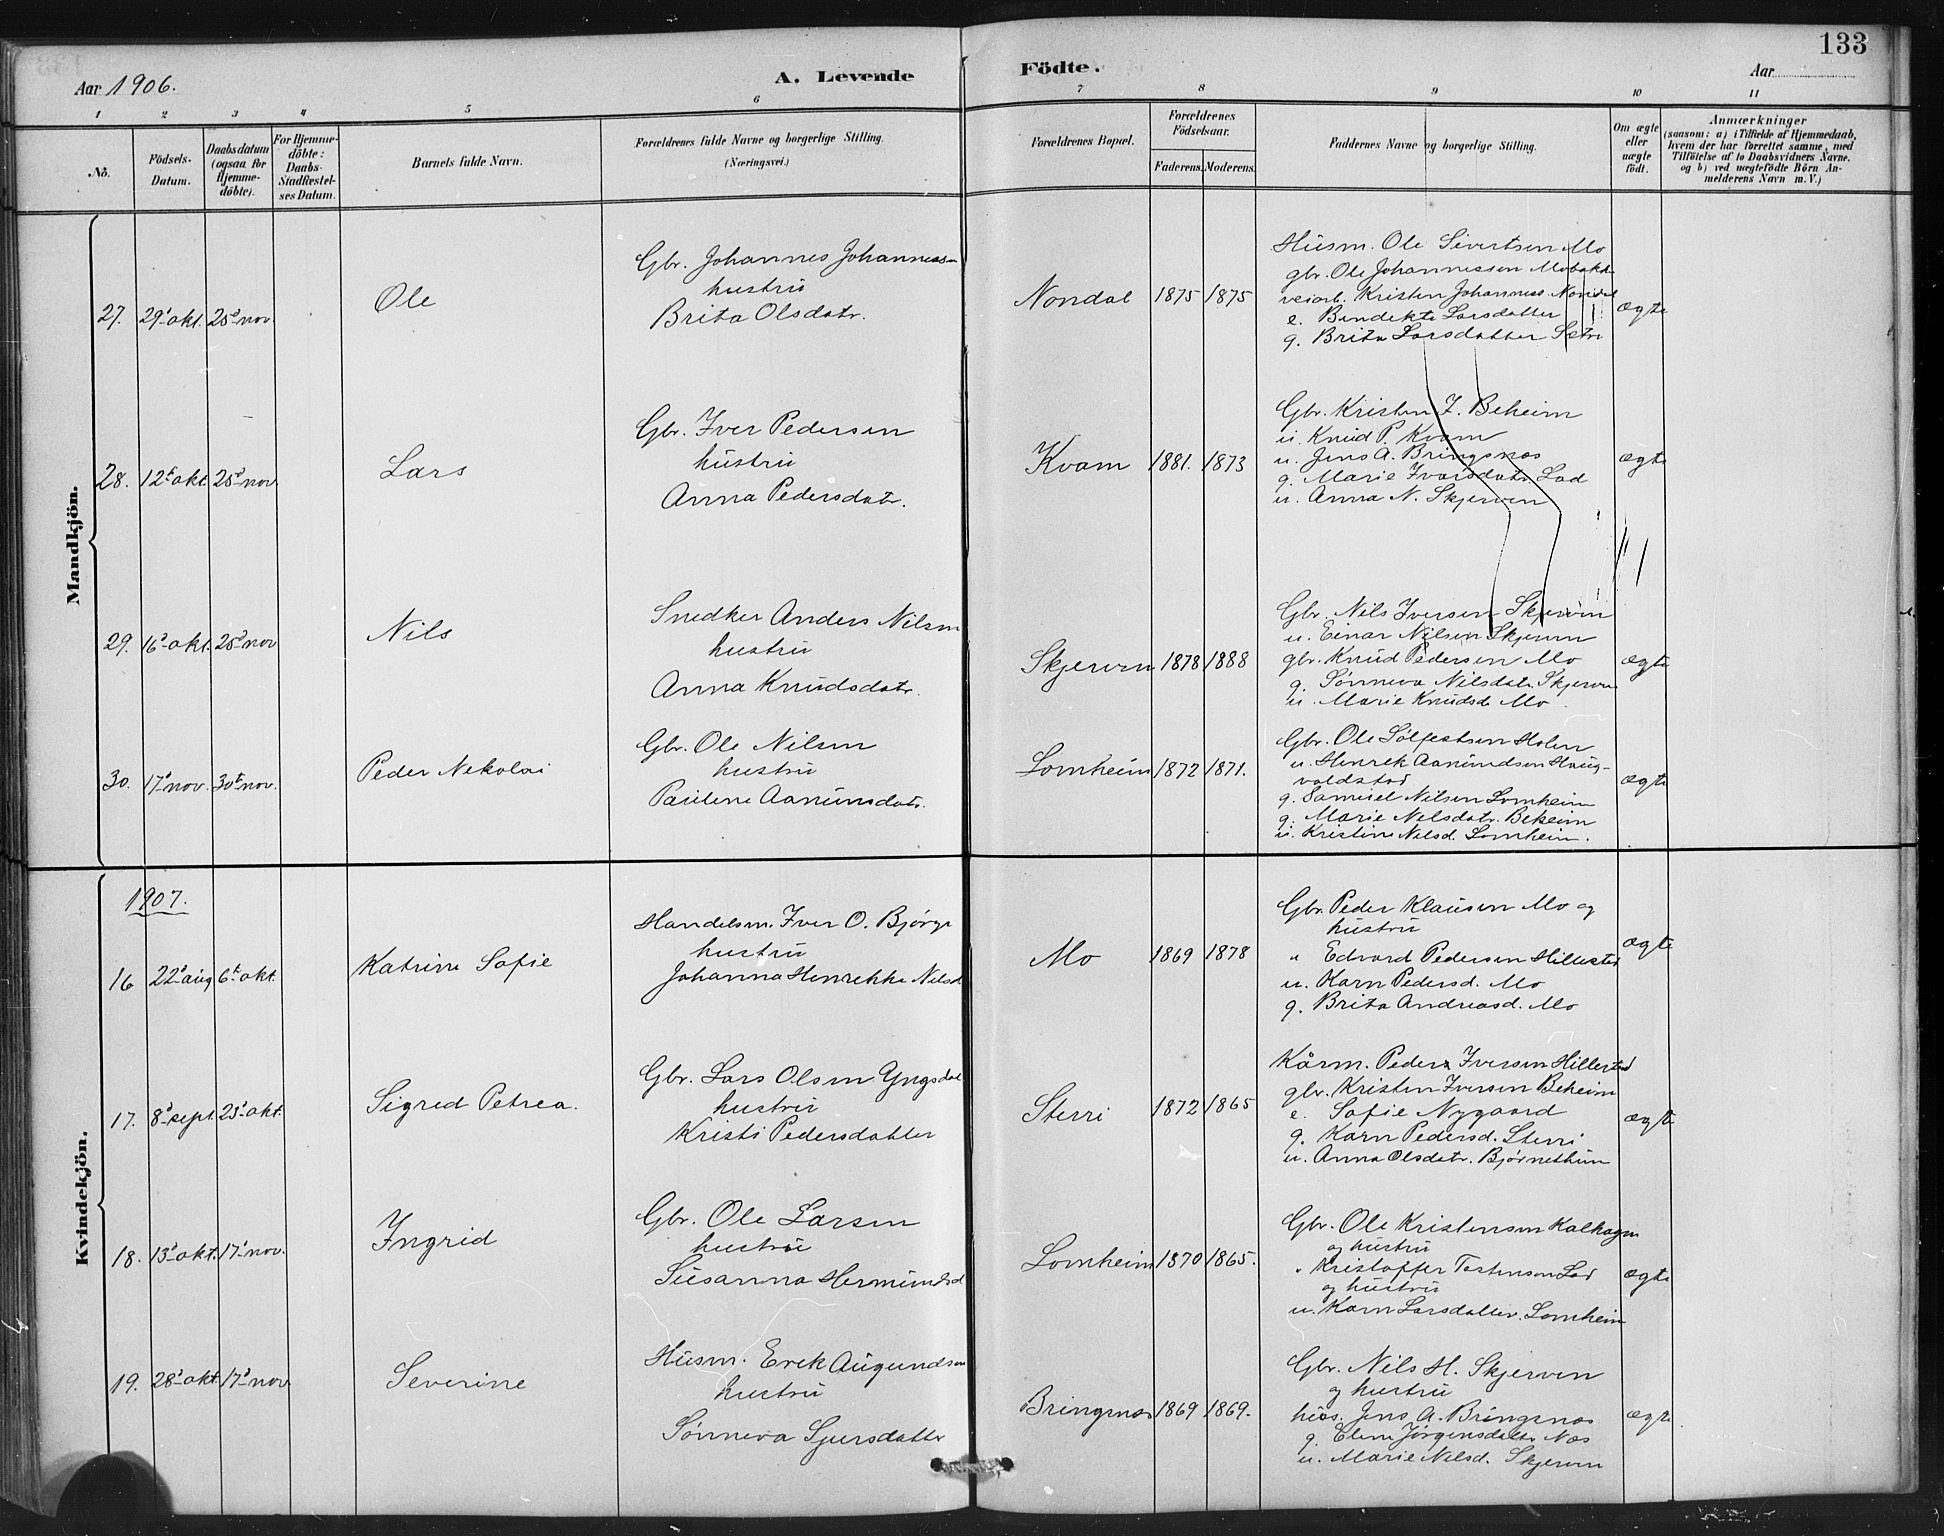 133
Aar 1906.
A. Levende
Födte.
Aar
1
2
3
4
5
6
7
8
9
10
11
No.
Födsels-
Datum.
Daabsdatum
(ogsaa for
Hjemme-
döbte).
For Hjemme-
döbte:
Daabs-
Stadfæstel-
ses Datum.
Barnets fulde Navn.
Forældrenes fulde Navne og borgerlige Stilling.
(Næringsvei.)
Forældrenes Bopæl.
Forældrenes
Födselsaar.
Faderens.
Moderens.
Faddernes Navne og borgerlige Stilling.
Om ægte
eller
uægte
födt.
Anmærkninger
(saasom: a) i Tilfælde af Hjemmedaab,
hvem der har forrettet samme, med
Tilföielse af to Daabsvidners Navne.
og b) ved uægtefödte Börn An-
melderens Navn m. V.)
Mandkjön.
27. 29' okt. 25' nov.
Ole
Gbr. Johannes Johanness
hustru
Brita Olsdatr.
Nondal 1875 1875
Husm. Ole Sivertsen Mo
gbr. Ole Johannessen
veiarb. Kristen Johanness Nondal
e. Bendekte Larsdatter
g. Brita Larsdatter Sætri
ægte
28. 12t okt. 25' nov
Lars
Gbr. Iver Pedersen
hustru
Anna Pedersdatr.
Kvam 1881. 1873
Gbr. Kristen I. Beheim
u. Knud P. Kvam
u. Jens A. Bringsnæs
g. Marie Ivarsdatr. Lad
u. Anna N. Skjerven
ægte
29. 16' okt. 25' nov
Nils
Snedker Anders Nilsen
hustru
Anna Knudsdatr.
Skjerven 1878 1888
Gbr. Nils Iversen Skjerven
u. Einar Nilsen Skjerven
gbr. Knud Pedersen Mo
g. Sønneva Nilsdatr. Skjerven
u. Marie Knudsd. Mo.
ægte
30. 17' nov. 30t nov.
Peder Nekolai
Gbr. Ole Nilsen
hustru
Pauline Aanunsdatr.
Lomheim 1872 1871.
Gbr. Ole Sølfestsen Holen
u. Henrek Aanundsen Haug-
valdstad
g. Samuel Nilsen Lomheim
g. Marie Nelsdatr. Beheim
u. Kristine Nilsd. Lomheim.
ægte
Kvindekjön.
1907.
16 22' aug 6t okt.
Katrine Sofie
Handelsm. Iver O. Bjørge
hustru
Johanna Henrekke Nilsd
Mo 1869 1878
Gbr. Peder Klausen Mo og
hustru
" Edvard Pedersen Hillestad
u. Karn Pedersd. Mo
g. Brita Andreasd. Mo
ægte
17. 8' sept. 25' okt.
Sigred Petrea.
Gbr. Lars Olsen Yngsdal
hustru
Kristi Pedersdatter
Sterri 1872 1865
Kårm. Peder Iversen Hillestad
gbr. Kristen Iversen Beheim
e. Sofie Nygaard
g. Karn Pedersd. Sterri
u. Anna Olsdatr. Bjørnethun
ægte
18. 13' okt. 17' nov.
Ingrid
Gbr. Ole Larsen
hustru
Susanna Hermundsd
Lomheim 1870 1865.
Gbr. Ole Kristensen Kalhagen
og hustru
" Kristoffer Torstensen Lad
og hustru
u. Karn Larsdatter. Lomheim
ægte
19. 28' okt. 17' nov
Severine
Husm. Erek Augundsen
hustru
Sønneva Sjursdatter
Bringsnæs 1869 1869.
Gbr. Nils H. Skjerven
og hustru
hus. Jens A. Bringsnæs
g. Eline Jørgensdatter Næs
u. Marie Nilsd. Skjerven
ægte.